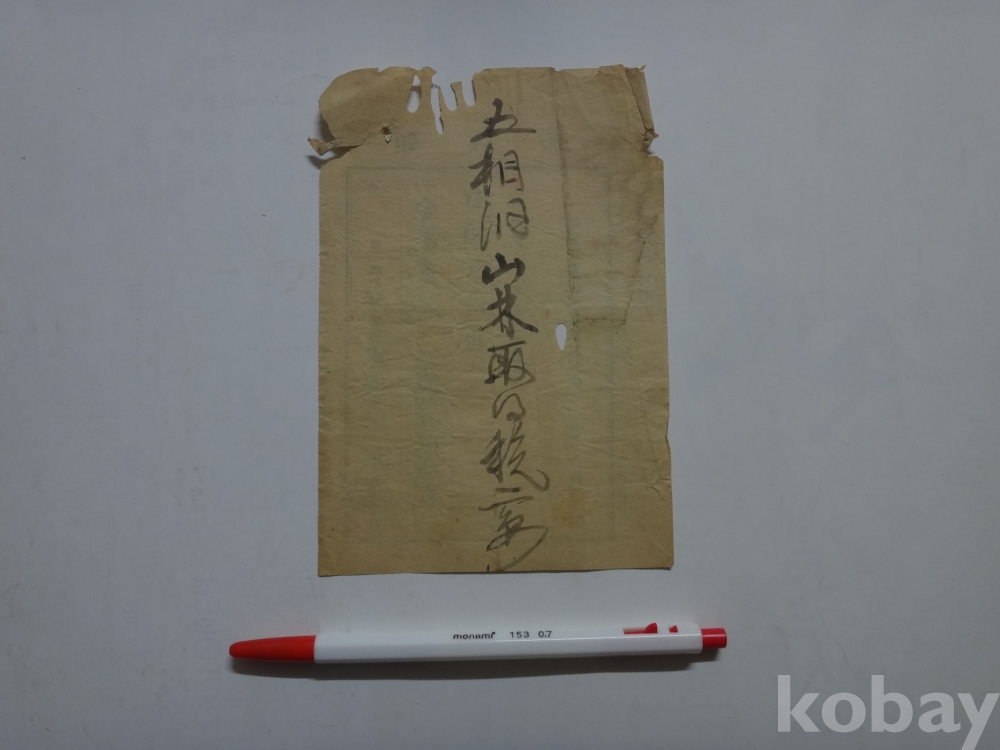 五相洞山林取得税
monami 153 0.7
kobay